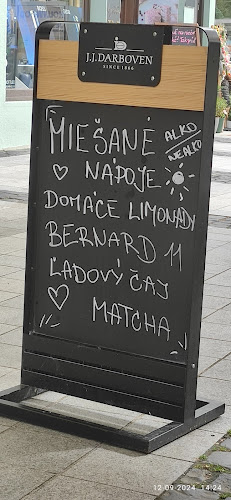 J.J.DARBOVEN
SINCE 1866
MIEŠANÉ
ALKO
NEALKO
NÁPOJE
DOMÁCE LIMONÁDY
BERNARD 11
ĽADOVÝ ČAJ
MATCHA
12.09.2024 14:24